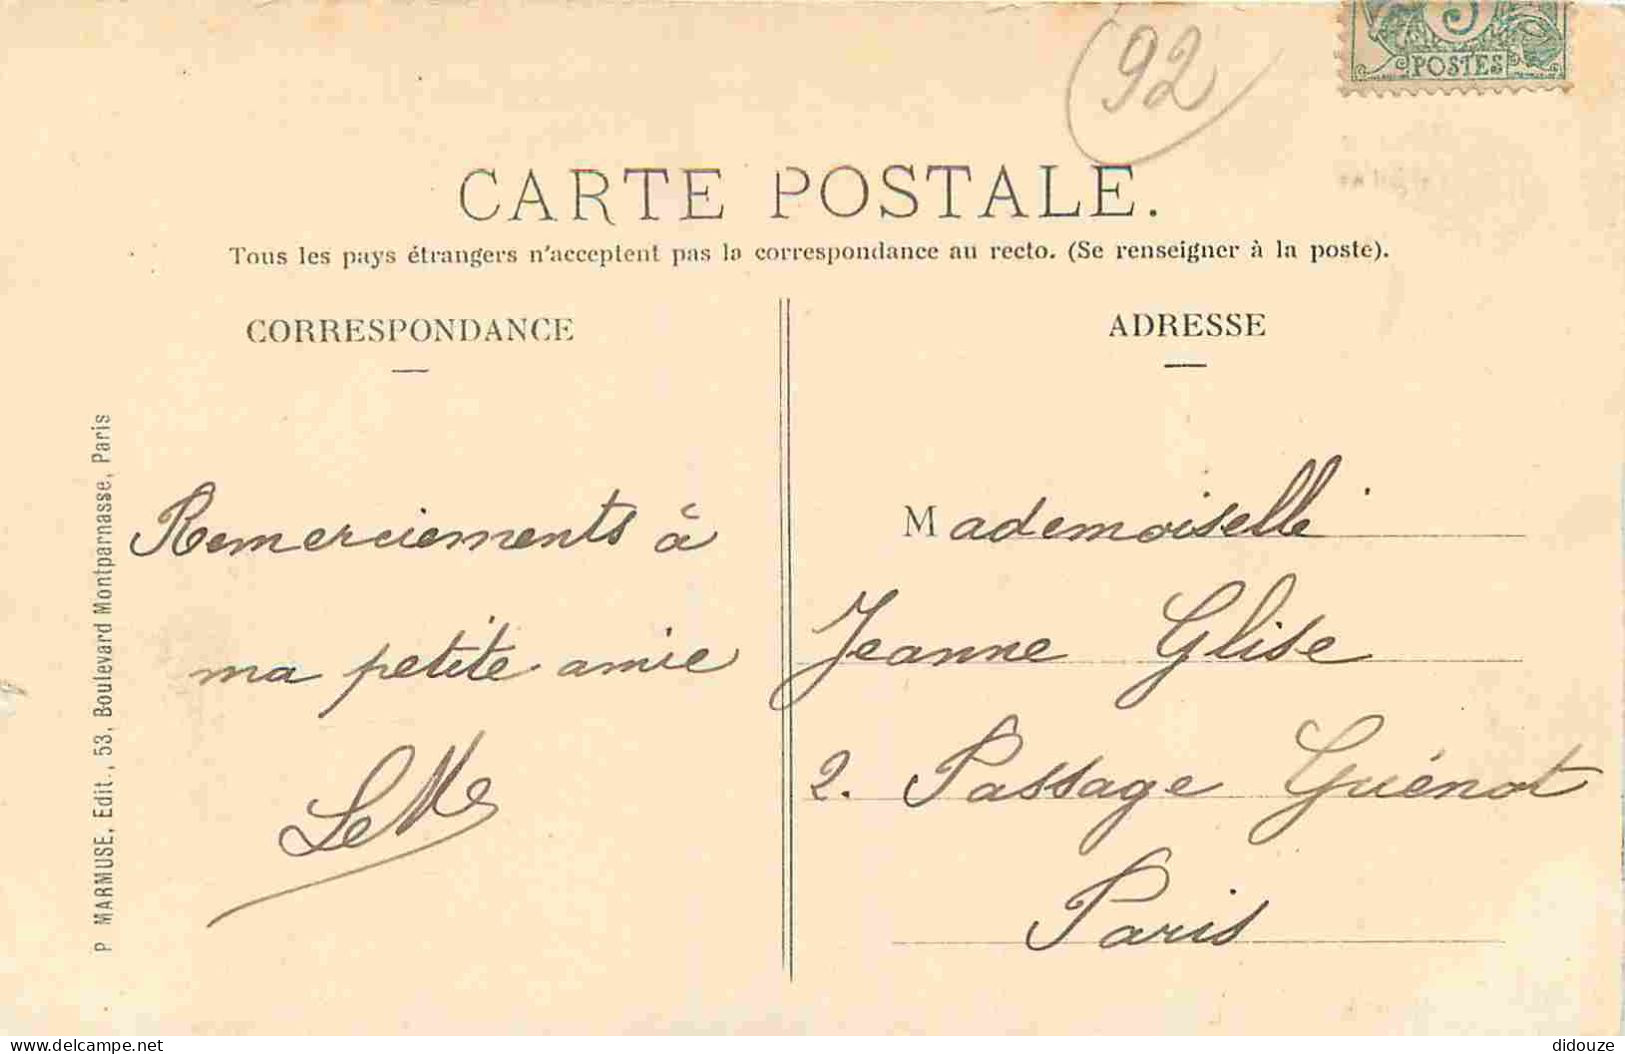 92
5
POSTES
CARTE POSTALE.
Tous les pays étrangers n'acceptent pas la correspondance au recto. (Se renseigner à la poste).
CORRESPONDANCE
ADRESSE
P MARMUSE, Edit., 53, Boulevard Montparnasse, Paris
Remerciements à
ma petite amie
Mademoiselle
Jeanne Glise
2. Passage Guénot
Paris
www.delcampe.net
didouze